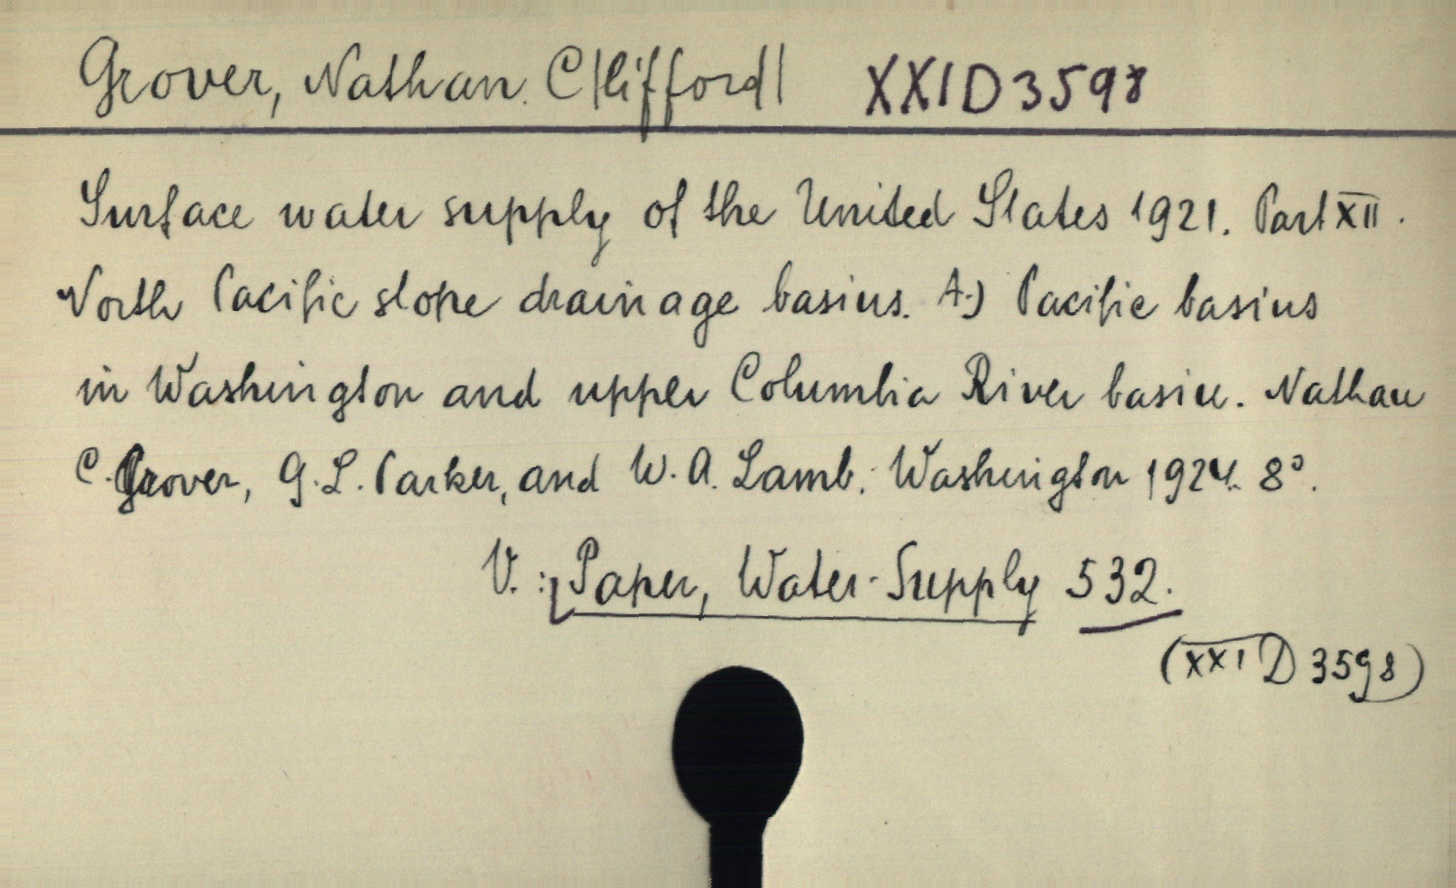 Grover, Nathan C|lifford| XXI D 3598
Surface water supply of the United States 1921. Part XII.
North Pacific slope drainage basins. A.) Pacific basins
in Washington and upper Columbia River basin. Nathan
C. Grover, G.L. Parker, and W.A. Lamb. Washington 1924. 8°.
V.: Paper, Water-Supply 532.
(XXI D 3598)